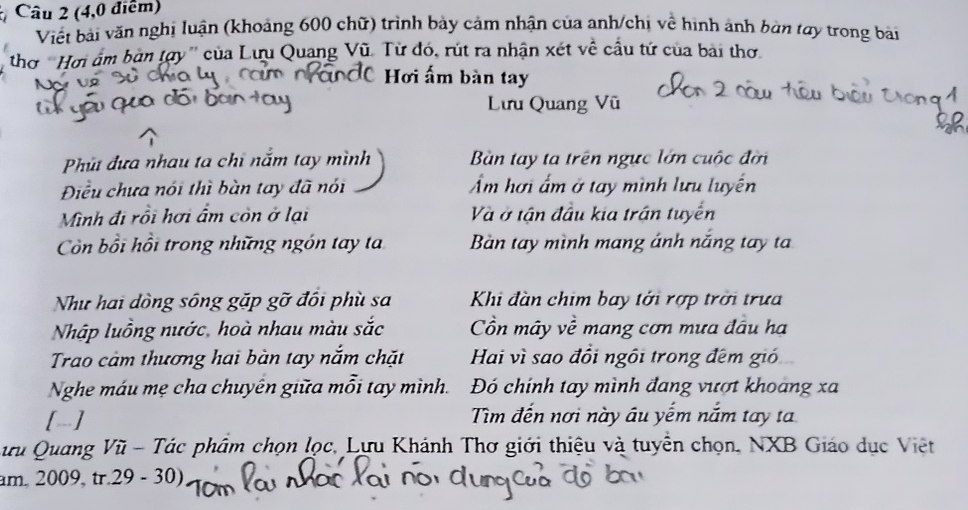 Câu 2 (4,0 điểm)
Viết bài văn nghị luận (khoảng 600 chữ) trình bày cảm nhận của anh/chị về hình ảnh bàn tay trong bài
thơ "Hơi ấm bàn tay" của Lưu Quang Vũ. Từ đó, rút ra nhận xét về cấu tứ của bài thơ.
Nói về sự chia ly, cảm nhận đc
Hơi ấm bàn tay
tình yêu qua đôi bàn tay
Lưu Quang Vũ
Chọn 2 câu tiêu biểu trong 1
Phút đưa nhau ta chỉ nắm tay mình
Điều chưa nói thì bàn tay đã nói
Mình đi rồi hơi ấm còn ở lại
Còn bồi hồi trong những ngón tay ta
Như hai dòng sông gặp gỡ đôi phù sa
Nhập luồng nước, hoà nhau màu sắc
Trao cảm thương hai bàn tay nắm chặt
Nghe máu mẹ cha chuyển giữa mỗi tay mình.
[...]
Bàn tay ta trên ngực lớn cuộc đời
Ấm hơi ấm ở tay mình lưu luyến
Và ở tận đầu kia trận tuyến
Bàn tay mình mang ánh nắng tay ta
Khi đàn chim bay tới rợp trời trưa
Cồn mây về mang cơn mưa đầu hạ
Hai vì sao đổi ngôi trong đêm gió
Đó chính tay mình đang vượt khoảng xa
Tìm đến nơi này âu yếm nắm tay ta
ưu Quang Vũ – Tác phẩm chọn lọc, Lưu Khánh Thơ giới thiệu và tuyển chọn, NXB Giáo dục Việt
am, 2009, tr.29 - 30)
Tóm lại nhắc lại nội dung của đề bài